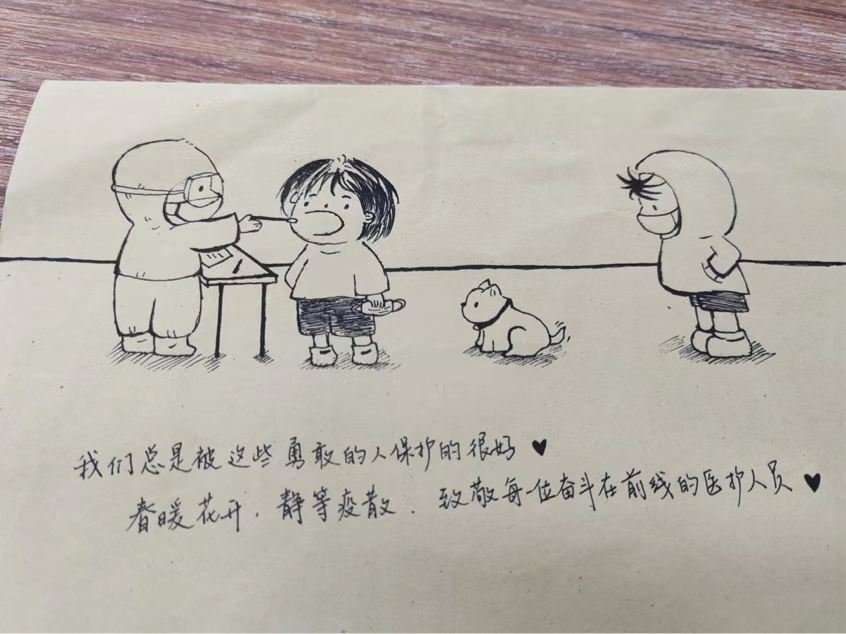 我们总是被这些勇敢的人保护的很好♥
春暖花开，静等疫散．致敬每一位奋斗在前线的医护人员♥